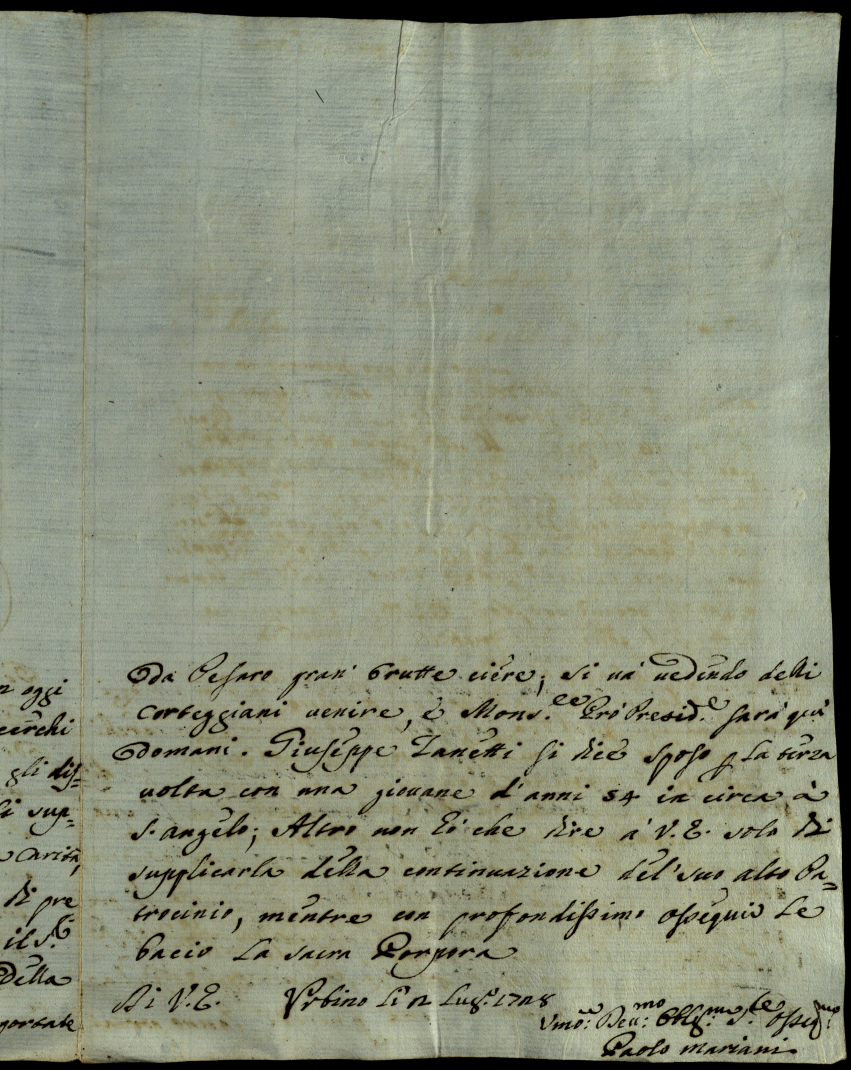 n oggi
cerchi
gli dis-
li sup-
Carità,
di pre
il S.r
Della
portate
Da Pesaro gran' brutte ciere; si và vedendo delli
Corteggiani venire, è Mons.re Pro Presid.e sarà quì
Domani. Giuseppe Zanetti si dice sposo p la terza
volta con una giovane d'anni 54 in circa à
S. Angelo; Altro non hò che dire à V.E. solo di
supplicarla della continuazione del suo alto Pa=
trocinio, mentre con profondissimo ossequio Le
bacio La Sacra Porpora
Di V.E. Urbino Li 12 Lug.o 1728
Vmo: Dev:mo Obblig.mo S.re osseq:mo
Paolo Mariani